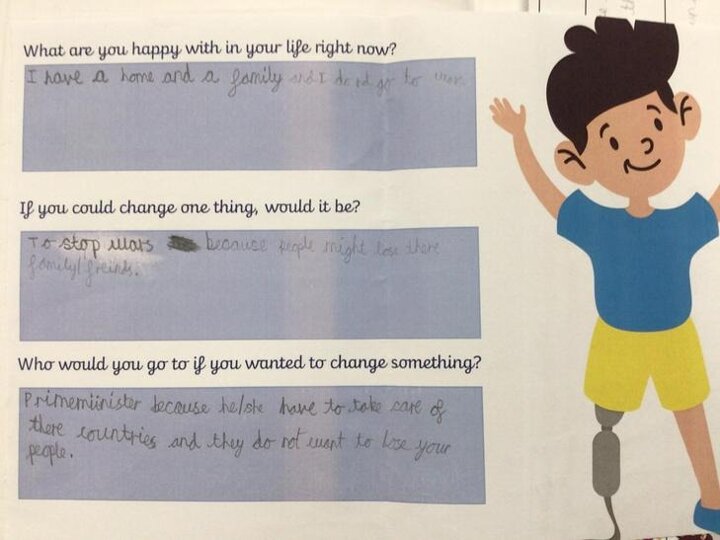 What are you happy with in your life right now?
I have a home and a family and I do not go to war
If you could change one thing, would it be?
To stop wars because people might lose there
family/freinds.
Who would you go to if you wanted to change something?
Primeminister because he/she have to take care of
there countries and they do not want to lose your
people.